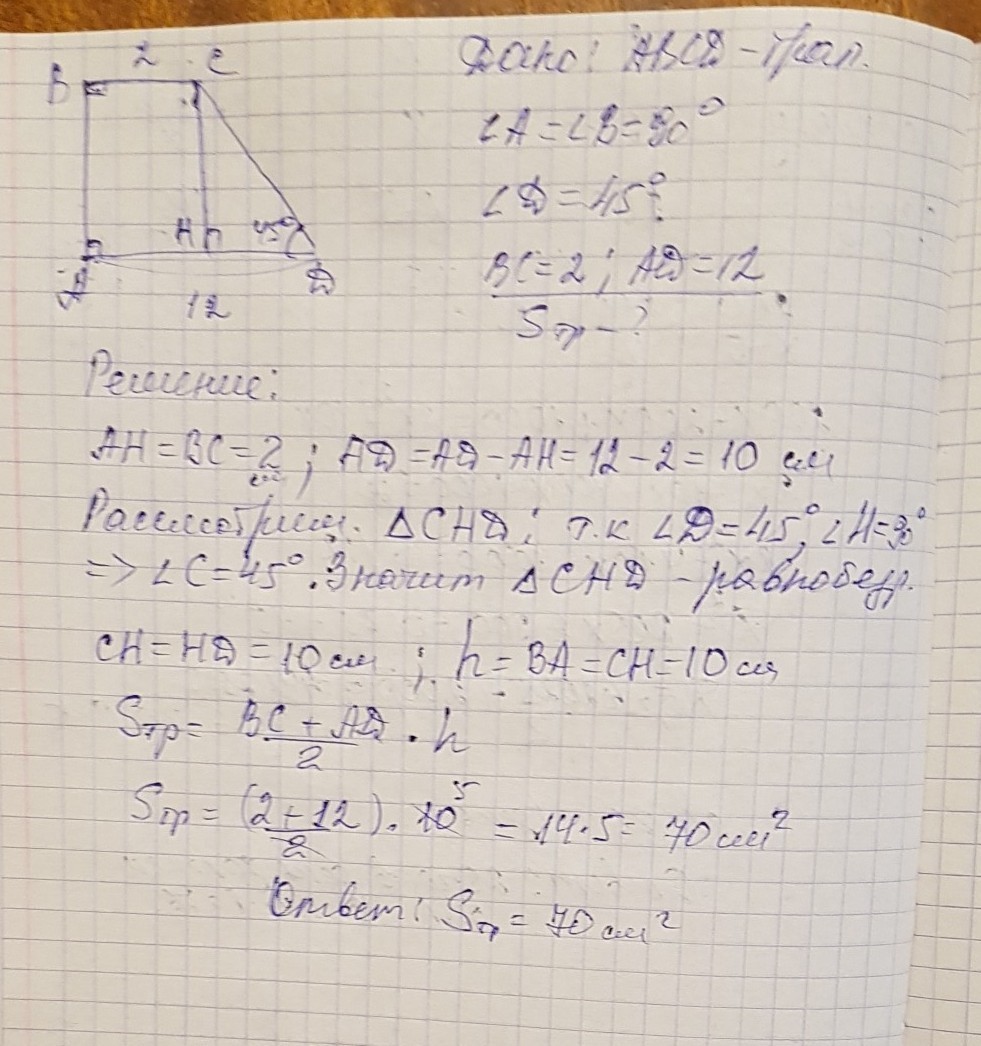 2 C
B
H 45°
A D
12
Дано: ABCD - трап.
∠A = ∠B = 90°
∠D = 45°.
BC = 2 ; AD = 12
Sтр - ?
Решение:
AH = BC = 2 см ; AD = AD - AH = 12 - 2 = 10 см
Рассмотрим. ΔCHD: т.к ∠D = 45°, ∠H = 90°
=> ∠C = 45°. Значит ΔCHD - равнобедр.
CH = HD = 10 см ; h = BA = CH = 10 см
Sтр = BC + AD / 2 · h
Sтр = (2 + 12) / 2 · 10 5 = 14 · 5 = 70 см²
Ответ: Sтр = 70 см²